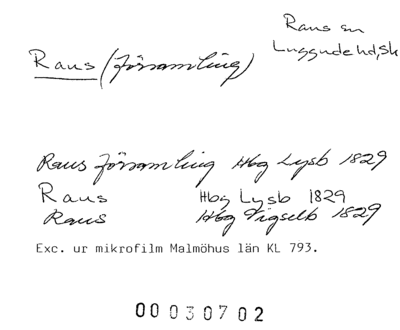 Raus sn
Luggude hd, Sk
Raus (församling)
Raus församling Hbg Lysb 1829
Raus Hbg Lysb 1829
Raus Hbg Vigselb 1829
Exc. ur mikrofilm Malmöhus län KL 793.
00030702